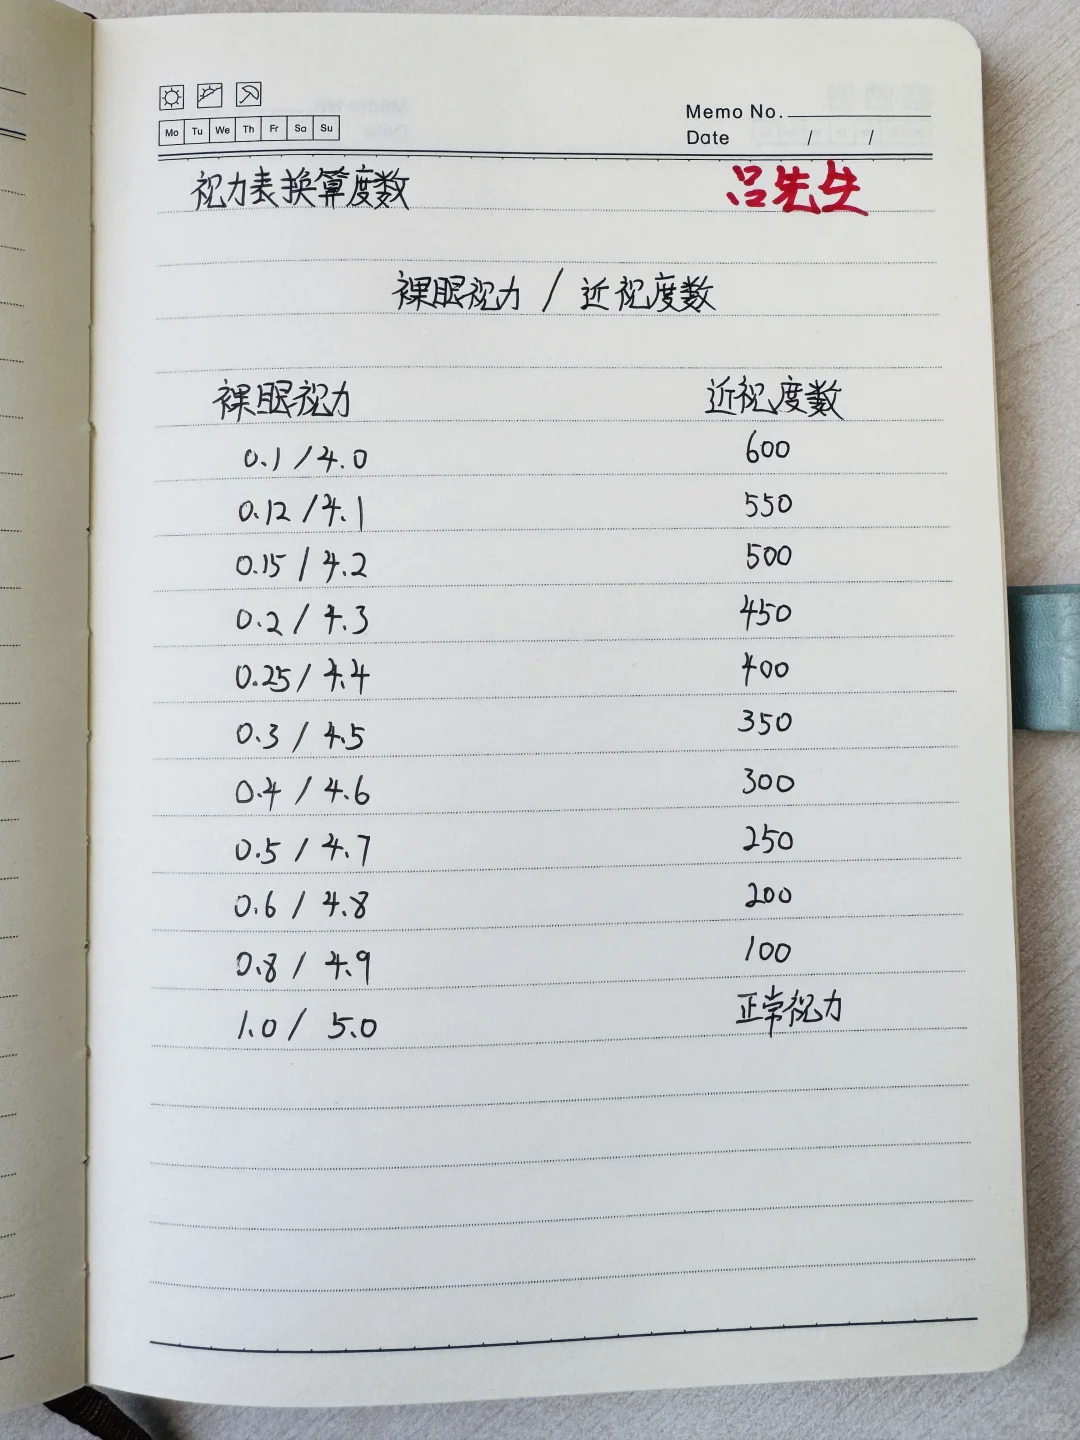 Memo No.
Mo Tu We Th Fr Sa Su
Date / /
视力表换算度数 吕先生
裸眼视力 / 近视度数
裸眼视力 近视度数
0.1 / 4.0 600
0.12 / 4.1 550
0.15 / 4.2 500
0.2 / 4.3 450
0.25 / 4.4 400
0.3 / 4.5 350
0.4 / 4.6 300
0.5 / 4.7 250
0.6 / 4.8 200
0.8 / 4.9 100
1.0 / 5.0 正常视力